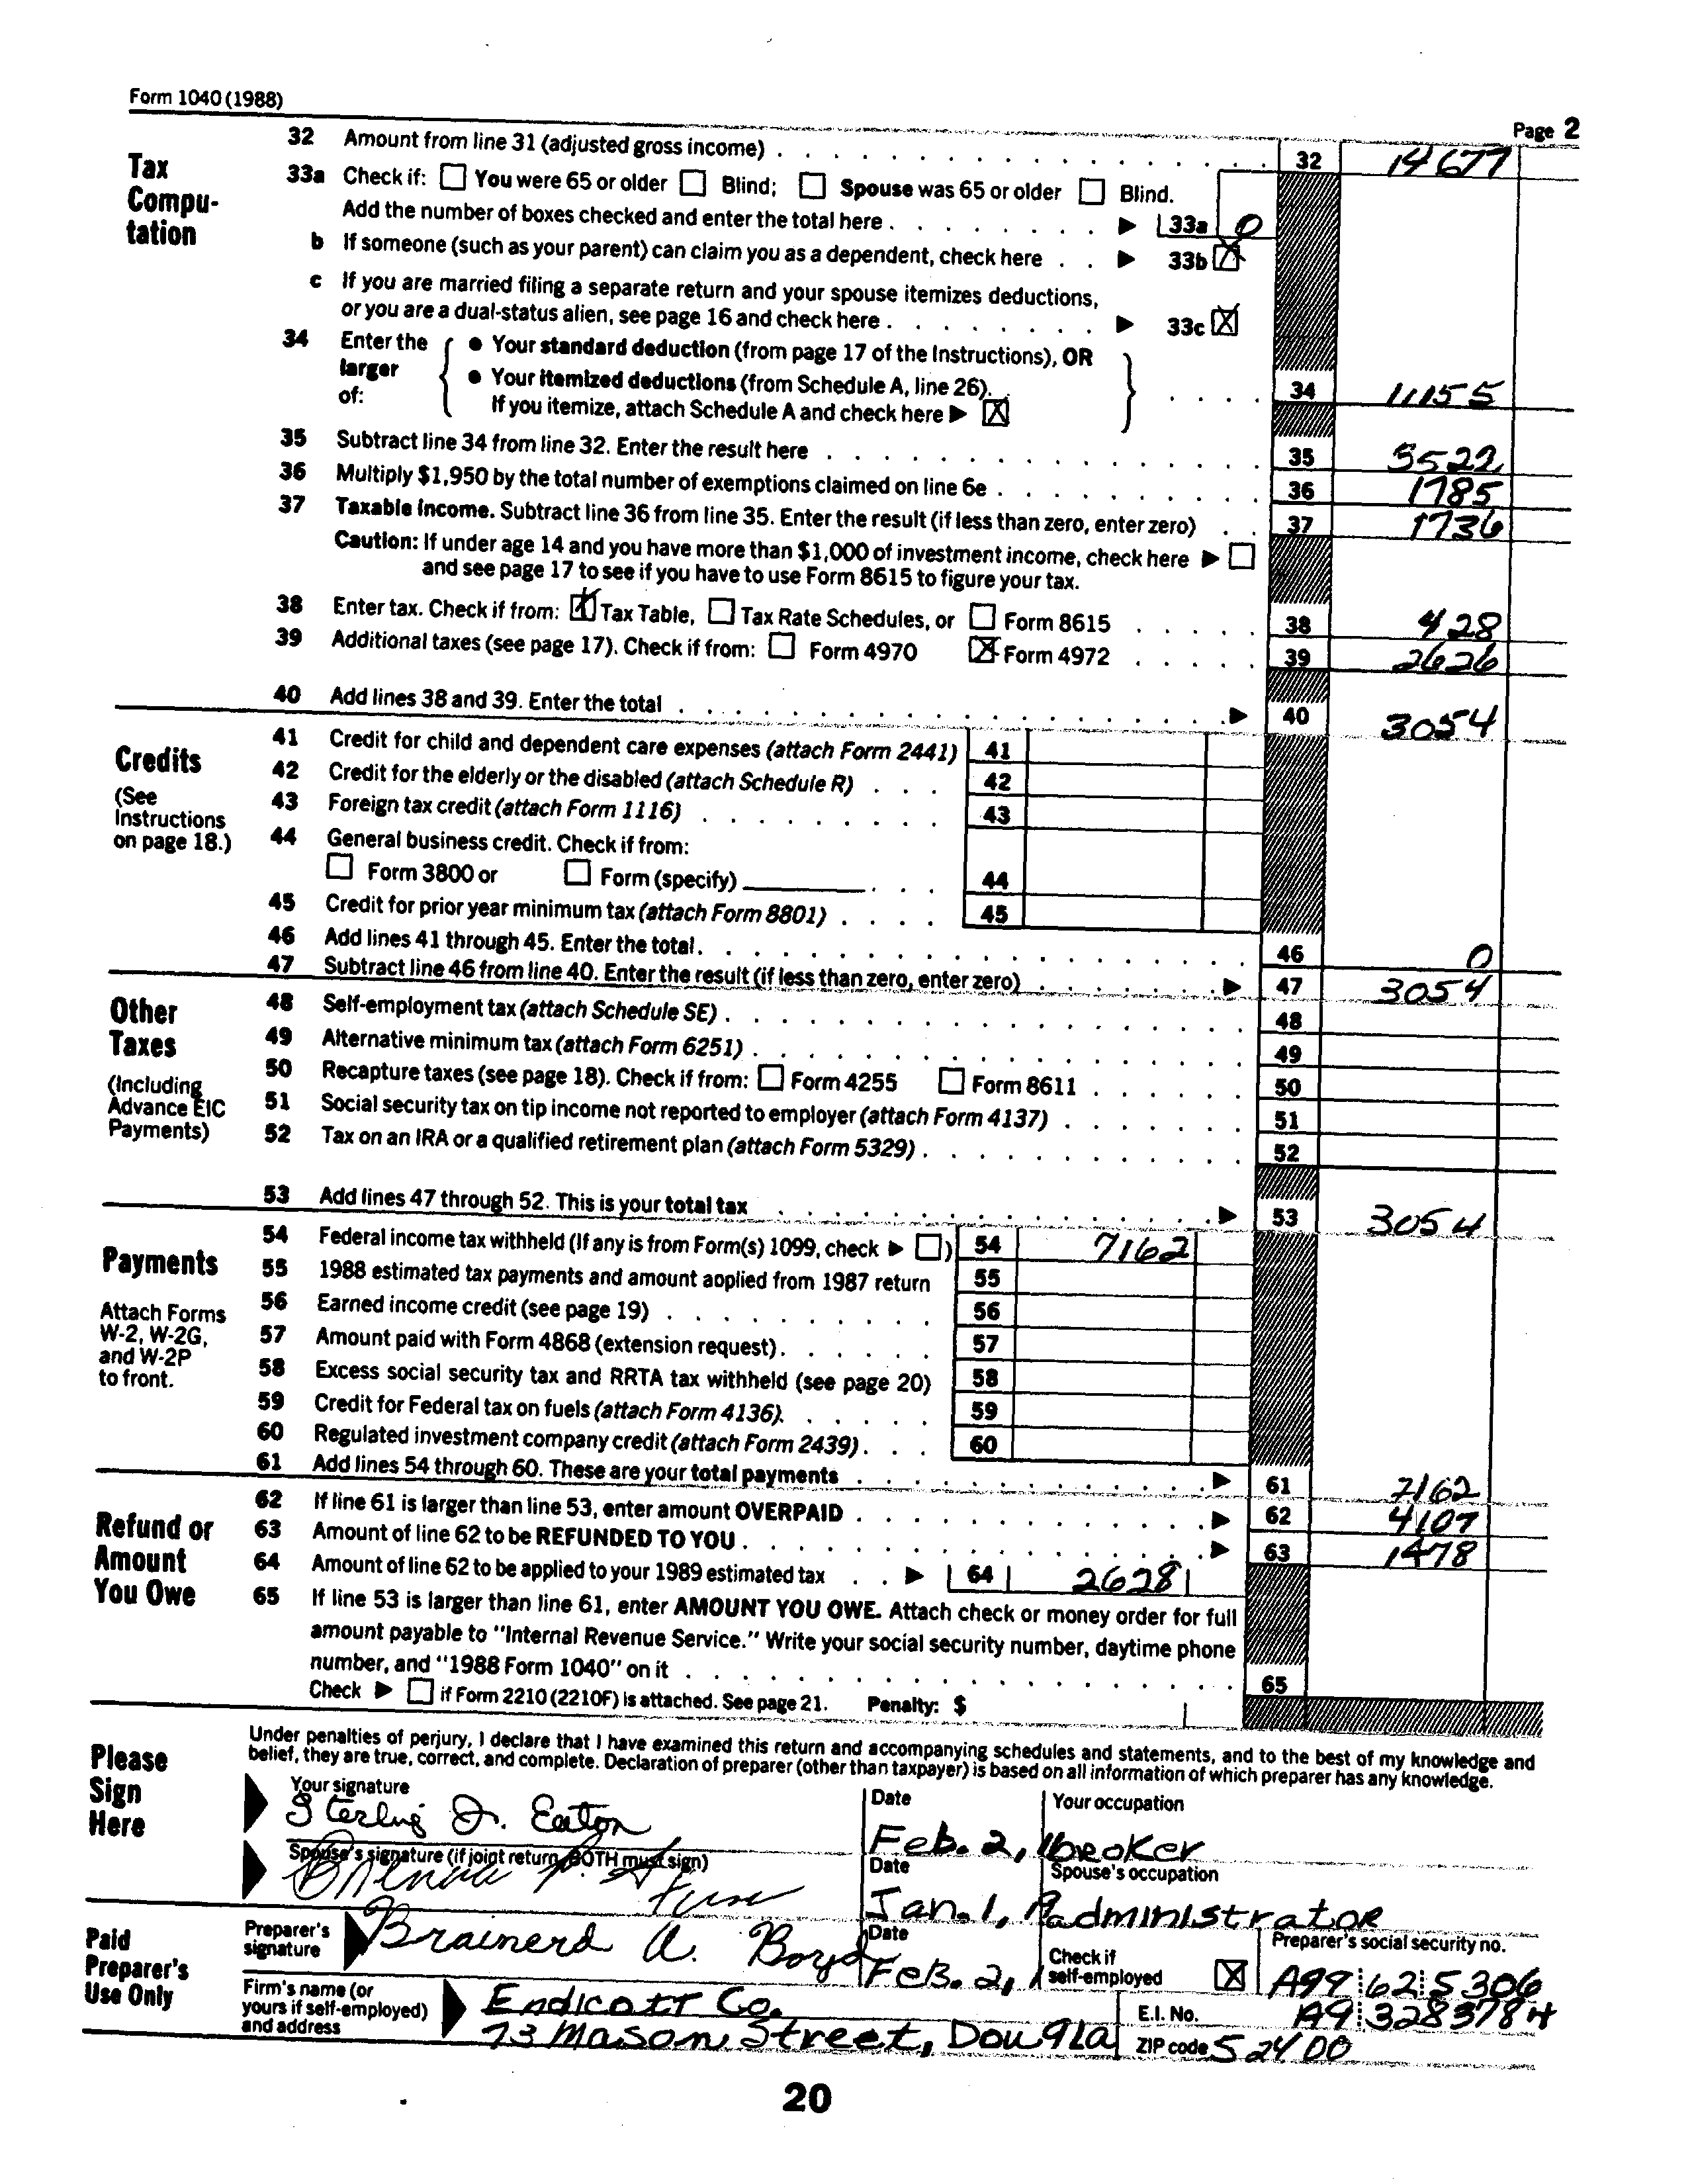 Form 1040 (1988)
Page 2
Tax Compu-tation
32 Amount from line 31 (adjusted gross income) 32 14677
33a Check if: You were 65 or older Blind; Spouse was 65 or older Blind.
Add the number of boxes checked and enter the total here 33a 0
b If someone (such as your parent) can claim you as a dependent, check here 33b X
c If you are married filing a separate return and your spouse itemizes deductions,
or you are a dual-status alien, see page 16 and check here 33c X
34 Enter the larger of:
• Your standard deduction (from page 17 of the Instructions), OR
• Your itemized deductions (from Schedule A, line 26). 34 11155
If you itemize, attach Schedule A and check here X
35 Subtract line 34 from line 32. Enter the result here 35 3522
36 Multiply $1,950 by the total number of exemptions claimed on line 6e 36 1785
37 Taxable income. Subtract line 36 from line 35. Enter the result (if less than zero, enter zero) 37 1736
Caution: If under age 14 and you have more than $1,000 of investment income, check here
and see page 17 to see if you have to use Form 8615 to figure your tax.
38 Enter tax. Check if from: X Tax Table, Tax Rate Schedules, or Form 8615 38 428
39 Additional taxes (see page 17). Check if from: Form 4970 X Form 4972 39 2626
40 Add lines 38 and 39. Enter the total 40 3054
Credits
(See Instructions on page 18.)
41 Credit for child and dependent care expenses (attach Form 2441) 41
42 Credit for the elderly or the disabled (attach Schedule R) 42
43 Foreign tax credit (attach Form 1116) 43
44 General business credit. Check if from:
Form 3800 or Form (specify) 44
45 Credit for prior year minimum tax (attach Form 8801) 45
46 Add lines 41 through 45. Enter the total. 46 0
47 Subtract line 46 from line 40. Enter the result (if less than zero, enter zero) 47 3054
Other Taxes
(Including Advance EIC Payments)
48 Self-employment tax (attach Schedule SE) 48
49 Alternative minimum tax (attach Form 6251) 49
50 Recapture taxes (see page 18). Check if from: Form 4255 Form 8611 50
51 Social security tax on tip income not reported to employer (attach Form 4137) 51
52 Tax on an IRA or a qualified retirement plan (attach Form 5329) 52
53 Add lines 47 through 52. This is your total tax 53 3054
Payments
Attach Forms W-2, W-2G, and W-2P to front.
54 Federal income tax withheld (If any is from Form(s) 1099, check ) 54 7162
55 1988 estimated tax payments and amount applied from 1987 return 55
56 Earned income credit (see page 19) 56
57 Amount paid with Form 4868 (extension request) 57
58 Excess social security tax and RRTA tax withheld (see page 20) 58
59 Credit for Federal tax on fuels (attach Form 4136) 59
60 Regulated investment company credit (attach Form 2439) 60
61 Add lines 54 through 60. These are your total payments 61 7162
Refund or Amount You Owe
62 If line 61 is larger than line 53, enter amount OVERPAID 62 4107
63 Amount of line 62 to be REFUNDED TO YOU 63 1478
64 Amount of line 62 to be applied to your 1989 estimated tax 64 2628
65 If line 53 is larger than line 61, enter AMOUNT YOU OWE. Attach check or money order for full
amount payable to "Internal Revenue Service." Write your social security number, daytime phone
number, and "1988 Form 1040" on it 65
Check if Form 2210 (2210F) is attached. See page 21. Penalty: $
Please Sign Here
Under penalties of perjury, I declare that I have examined this return and accompanying schedules and statements, and to the best of my knowledge and
belief, they are true, correct, and complete. Declaration of preparer (other than taxpayer) is based on all information of which preparer has any knowledge.
Your signature Date Your occupation
Sterling J. Eaton Feb. 2, broker
Spouse's signature (if joint return, BOTH must sign) Date Spouse's occupation
Jan. 1, Administrator
Paid Preparer's Use Only
Preparer's signature Brainerd A. Boyd Date Feb. 2, Check if self-employed X Preparer's social security no. A99 62 5306
Firm's name (or yours if self-employed) and address Endicott Co. E.I. No. A9 3283784
73 Mason Street, Dougla ZIP code 52400
20